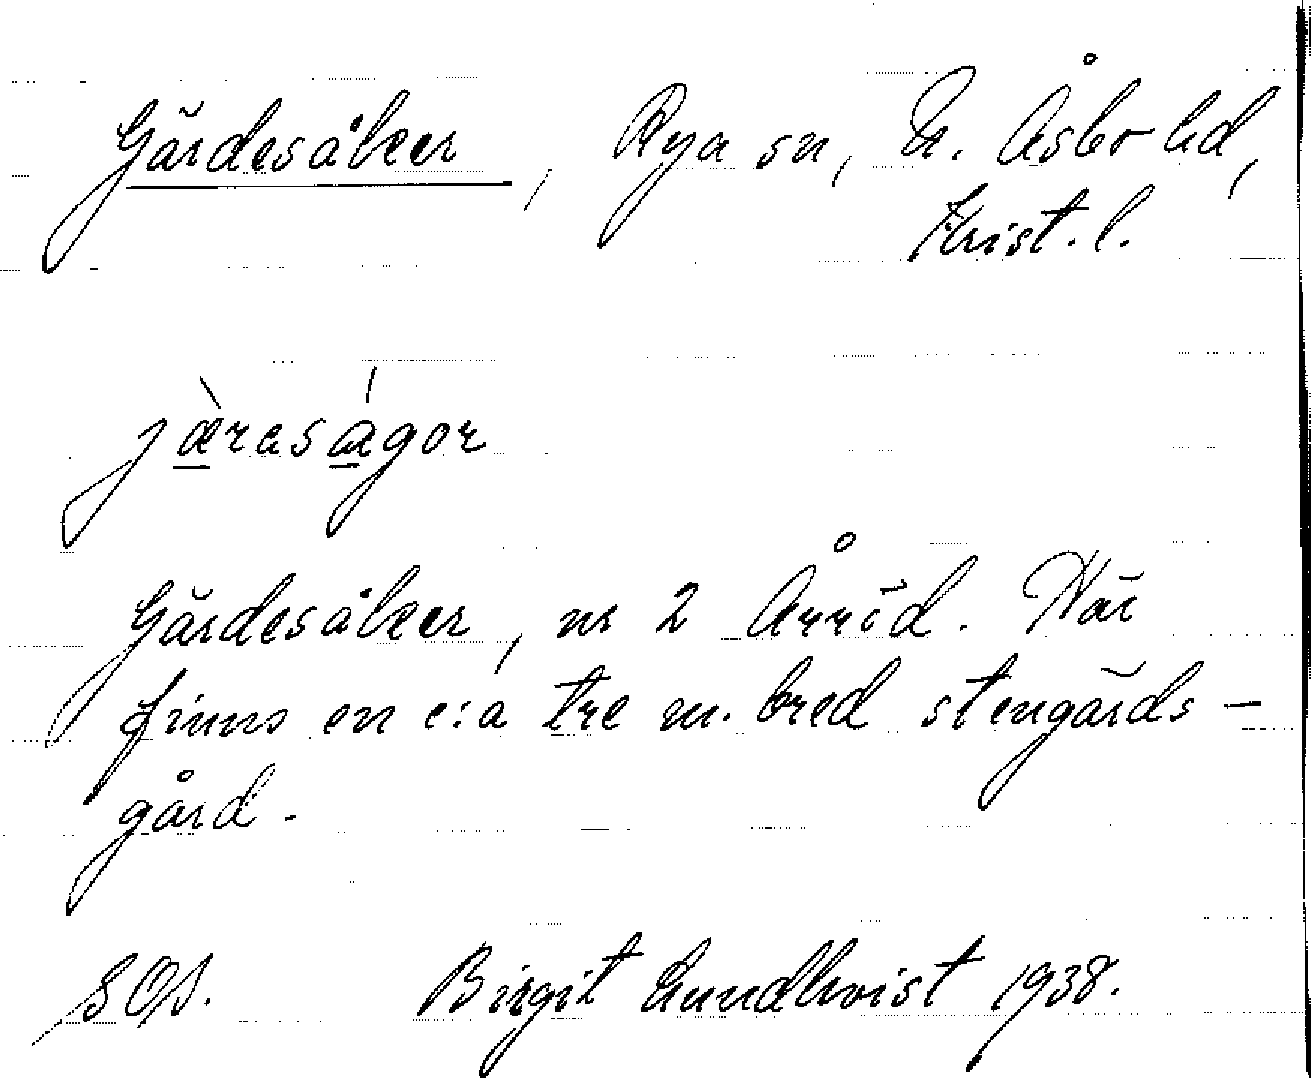 Gärdesåker, Rya sn, N. Åsbo hd,
Krist. l.
jæ̀raságor
Gärdesåker, nr 2 Årröd. Här
finns en c:a tre m. bred stengärds-
gård.
SOS. Birgit Lundkvist 1938.